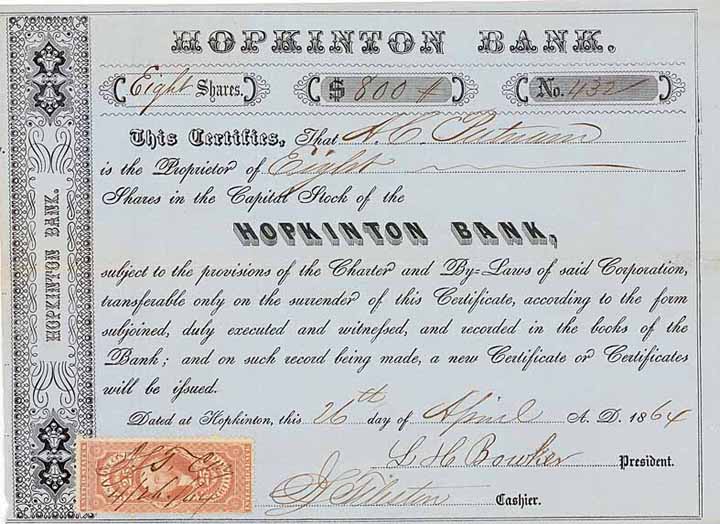 HOPKINTON BANK.
Eight Shares. $ 800 No. 432
This Certifies, That A. C. Putnam
is the Proprietor of Eight
Shares in the Capital Stock of the
HOPKINTON BANK,
subject to the provisions of the Charter and By=Laws of said Corporation,
transferable only on the surrender of this Certificate, according to the form
subjoined, duly executed and witnessed, and recorded in the books of the
Bank; and on such record being made, a new Certificate or Certificates
will be issued.
Dated at Hopkinton, this 26th day of April A. D. 1864
L H Bowker President.
Cashier.
HOPKINTON BANK.